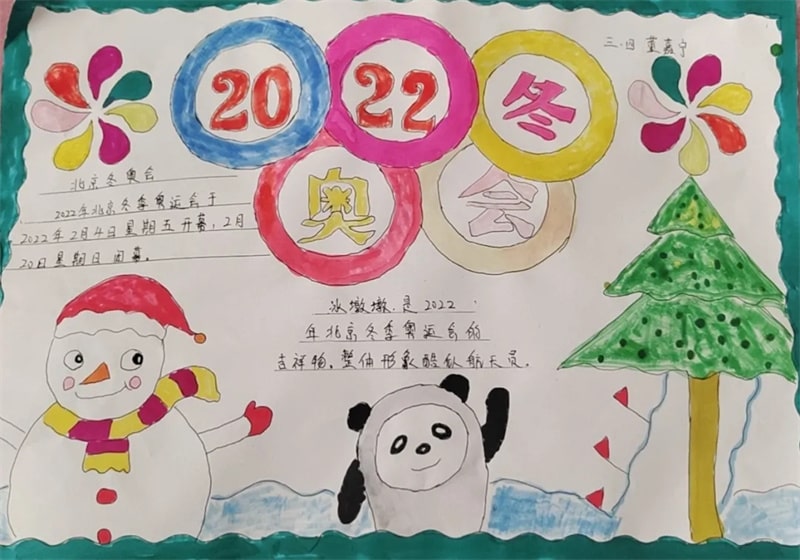 三.四 董嘉宁
20 22 冬
奥 会
北京冬奥会
2022年北京冬季奥运会于
2022年2月4日星期五开幕,2月
20日星期日闭幕。
冰墩墩,是2022
年北京冬季奥运会的
吉祥物。整体形象酷似航天员。